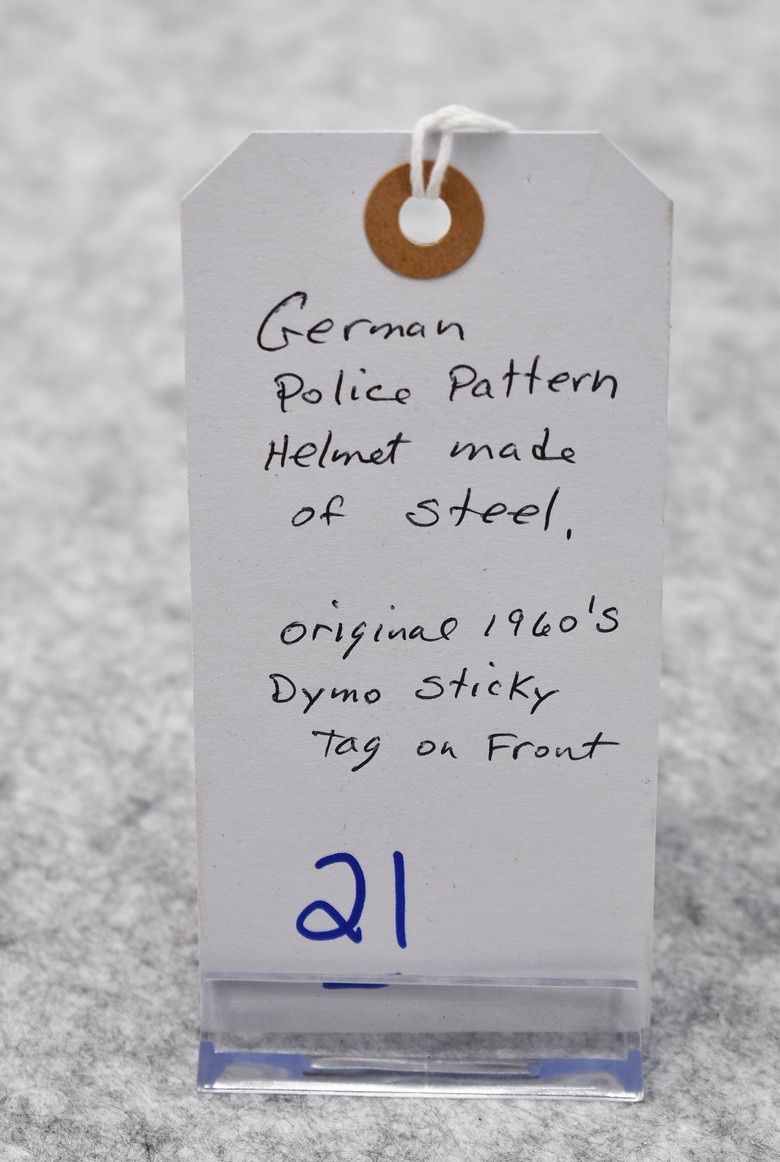 German
Police Pattern
Helmet made
of steel.
original 1960's
Dymo Sticky
Tag on Front
21